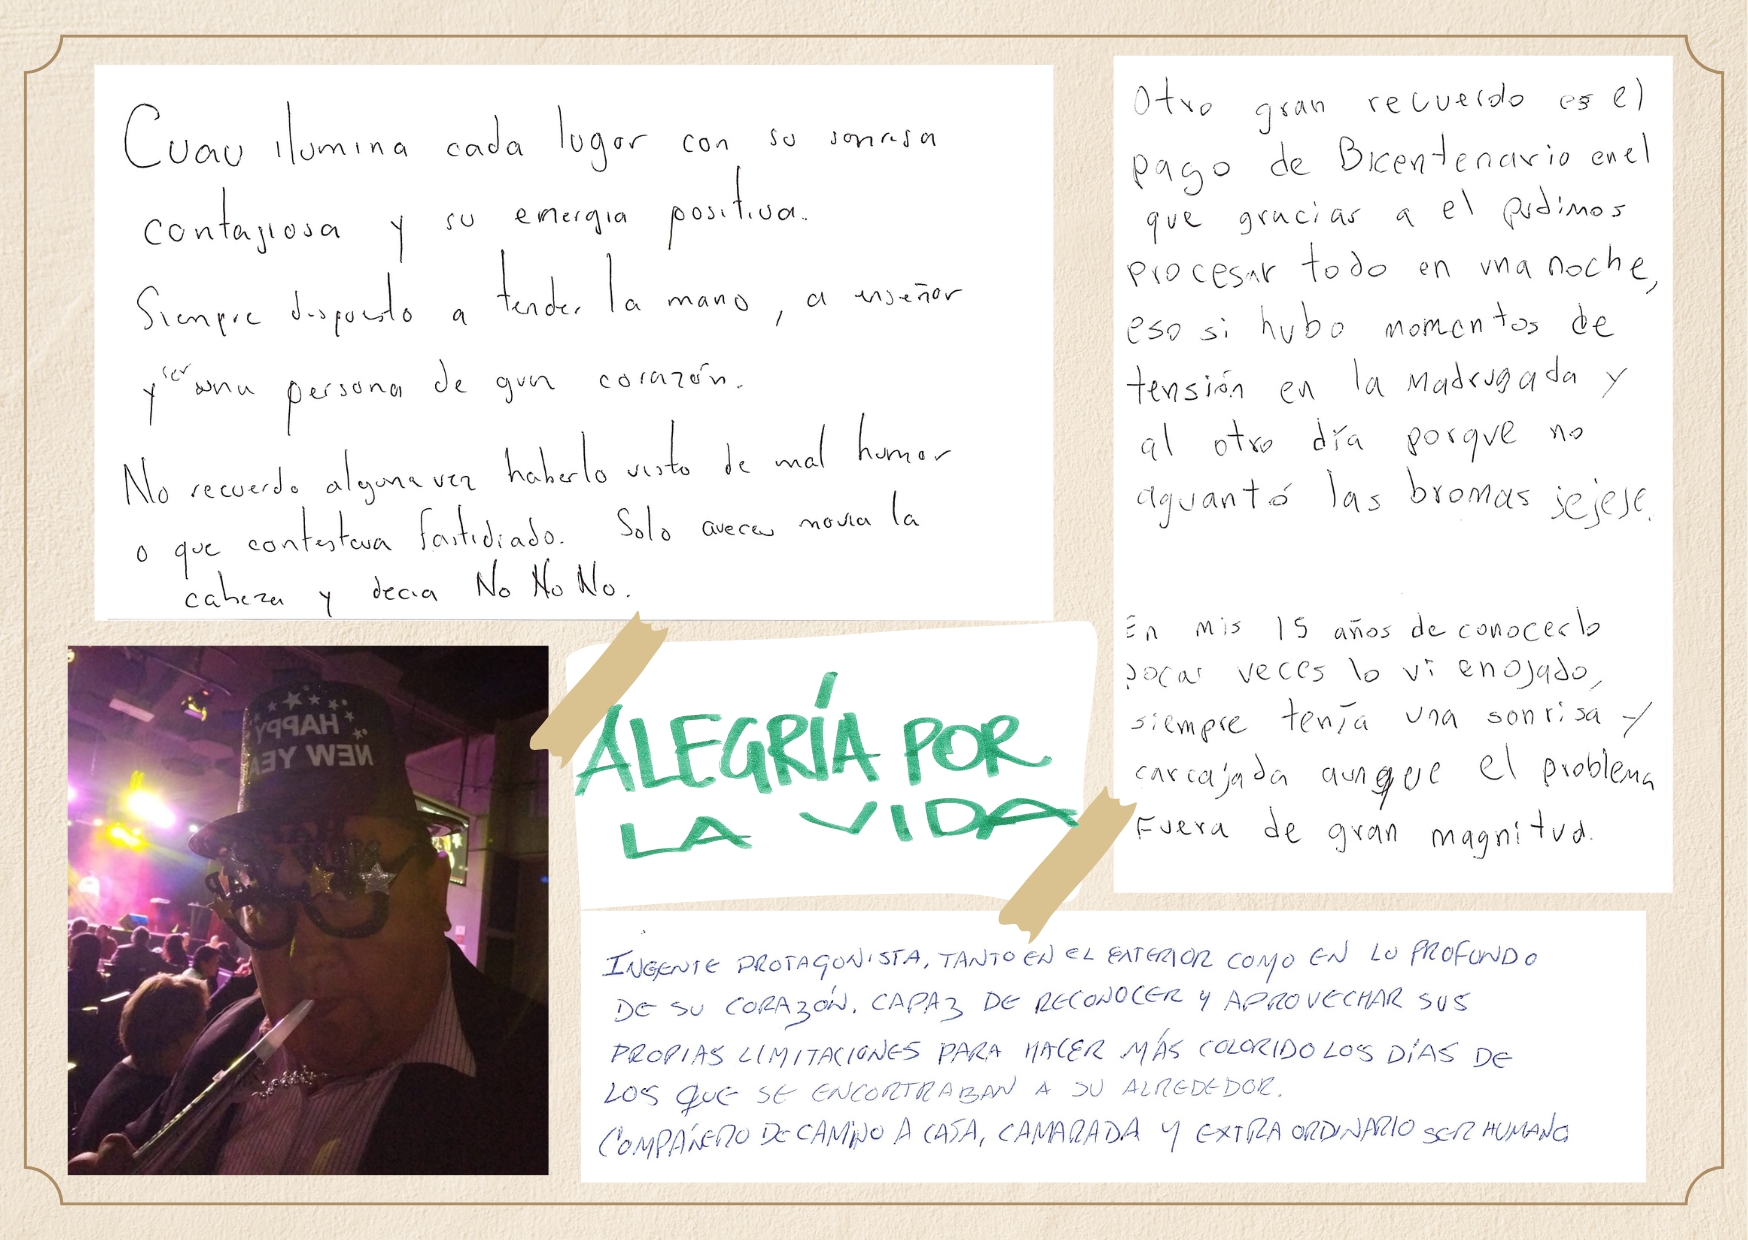 Cuau ilumina cada lugar con su sonrisa
contagiosa y su energia positiva.
Siempre dispuesto a tender la mano, a enseñar
y ser una persona de gran corazón.
No recuerdo alguna vez haberlo visto de mal humor
o que contestava fastidiado. Solo aveces movia la
cabeza y decia No No No.
Otro gran recuerdo es el
pago de Bicentenario en el
que gracias a el pudimos
procesar todo en una noche,
eso si hubo momentos de
tensión en la madrugada y
al otro día porque no
aguantó las bromas jejeje.
En mis 15 años de conocerlo
pocas veces lo vi enojado,
siempre tenía una sonrisa y
carcajada aunque el problema
fuera de gran magnitud.
HAPPY
NEW YEA
ALEGRÍA POR
LA VIDA
INGENTE PROTAGONISTA, TANTO EN EL EXTERIOR COMO EN LO PROFUNDO
DE SU CORAZÓN. CAPAZ DE RECONOCER Y APROVECHAR SUS
PROPIAS LIMITACIONES PARA HACER MÁS COLORIDO LOS DÍAS DE
LOS QUE SE ENCORTRABAN A SU ALREDEDOR.
COMPAÑERO DE CAMINO A CASA, CAMARADA Y EXTRAORDINARIO SER HUMANO